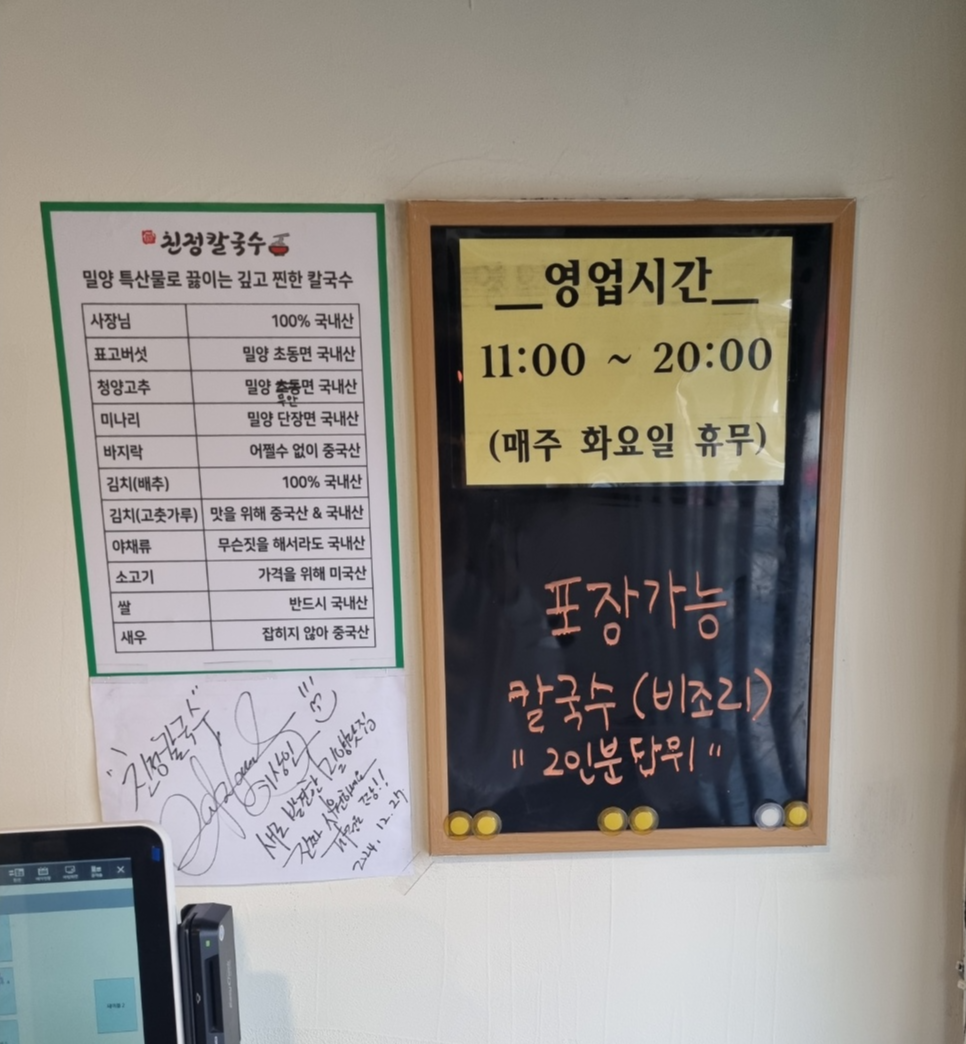 친정칼국수
밀양 특산물로 끓이는 깊고 찐한 칼국수
사장님 100% 국내산
표고버섯 밀양 초동면 국내산
청양고추 밀양 초동면 국내산
무안
미나리 밀양 단장면 국내산
바지락 어쩔수 없이 중국산
김치(배추) 100% 국내산
김치(고춧가루) 맛을 위해 중국산 & 국내산
야채류 무슨짓을 해서라도 국내산
소고기 가격을 위해 미국산
쌀 반드시 국내산
새우 잡히지 않아 중국산
"친정칼국수"
새로 발견한 밀양맛집
진짜 시원하네
2024. 12. 27
영업시간
11:00 ~ 20:00
(매주 화요일 휴무)
포장가능
칼국수 (비조리)
"2인분 단위"